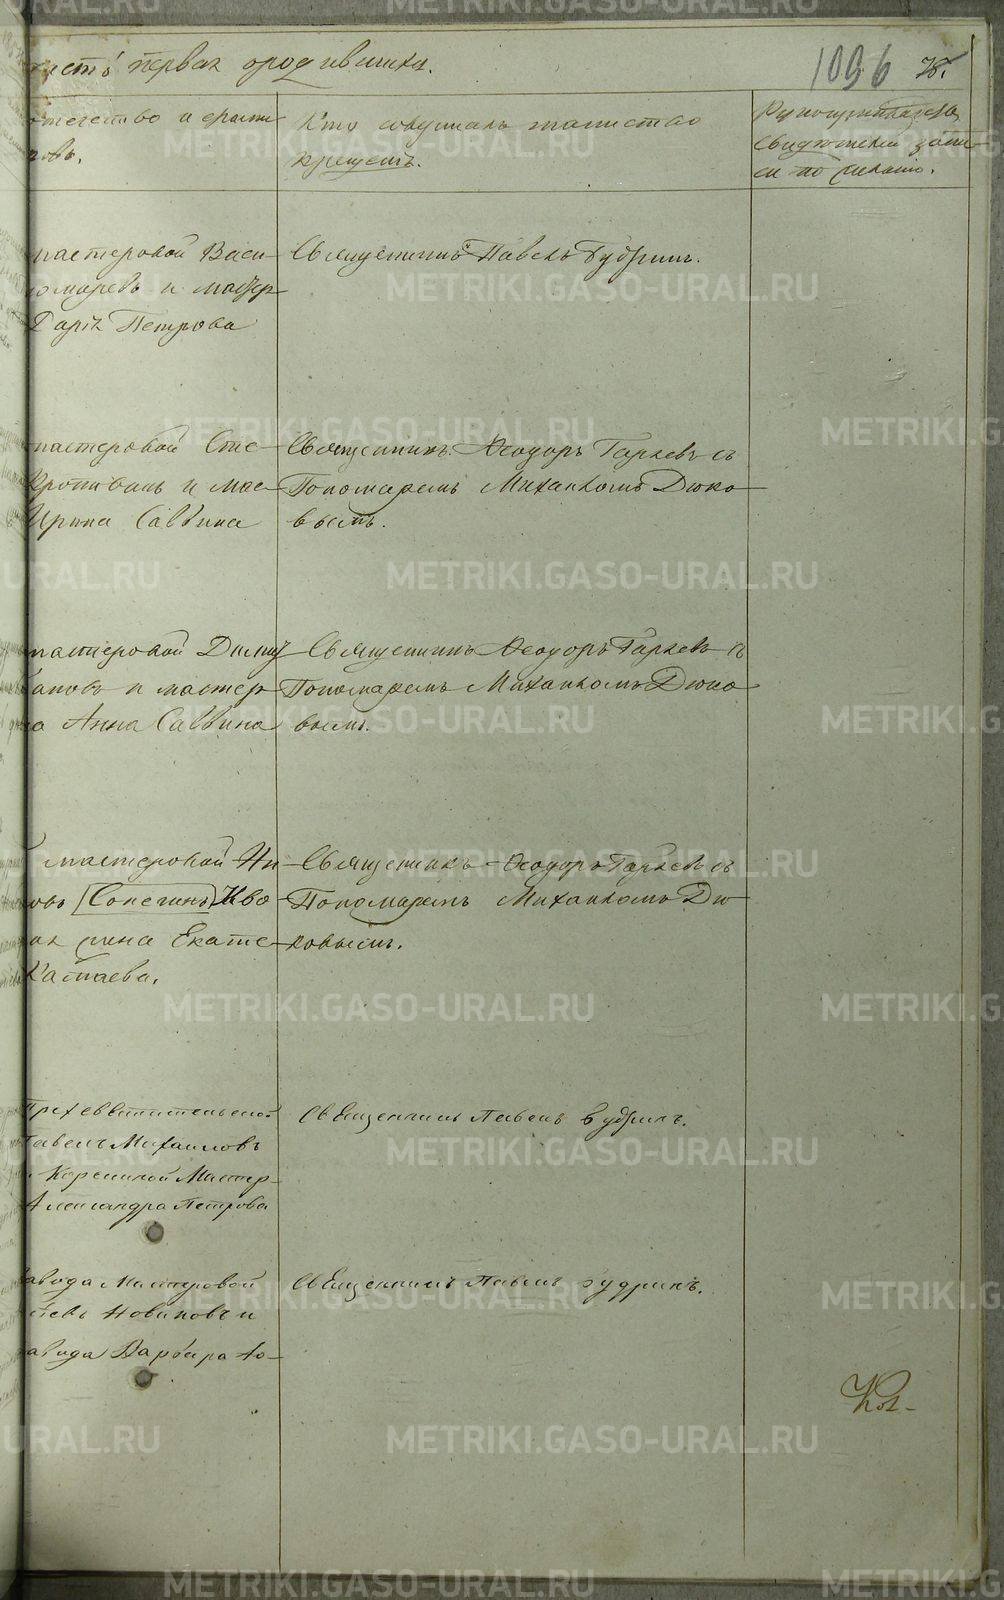 часть первая о родившихся.
1096
отечество и фами
ковъ.
Кто совершалъ таинство
крещенія.
Рукоприкладство
свидѣтелей запи-
си по желанію.
мастеровой Васи-
Священникъ Павелъ Будринъ.
номаревъ и мастер
Дарья Петрова
мастеровой Сте-
Кропи и мас-
Ирина Саввина
Священникъ Ѳеодоръ Гаряевъ съ
Пономаремъ Михаиломъ Дюко
вымъ.
мастеровой Димит
бановъ и мастер
Анна Саввина
Священникъ Ѳеодоръ Гаряевъ съ
Пономаремъ Михаиломъ Дюко
вымъ.
мастеровой Ни-
овъ (Сопегинъ) Ива
жена Екате-
Катаева.
Священникъ Ѳеодоръ Гаряевъ съ
Пономаремъ Михаиломъ Дю-
ковымъ.
Трехсвятительской
Павелъ Михаиловъ
Коренной Мастер-
Александра Петрова
Священникъ Павелъ Будринъ.
завода Мастеровой
Новиковъ и
завода Варвара Ѳо-
Священникъ Павелъ Будринъ.
METRIKI.GASO-URAL.RU